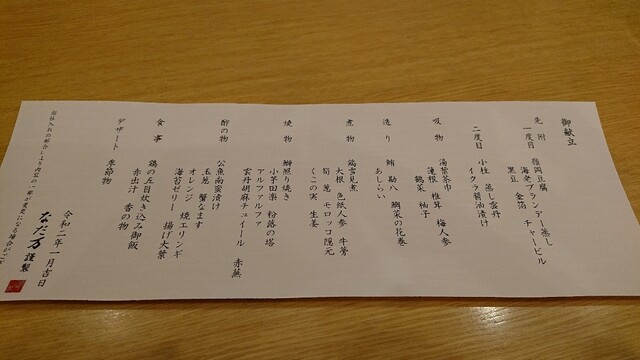 御献立
先附
一度目 胡麻豆腐
海老ブランデー蒸し
黒豆 金箔 チャービル
二度目 小柱 蒸し雲丹
イクラ醤油漬け
吸物 湯葉茶巾
蓮根 椎茸 梅人参
鶴菜 柚子
造り 鮪 勘八 鯛菜の花巻
あしらい
煮物 鶏雪見煮
大根 色紙人参 牛蒡
筍 蕗 モロッコ隠元
くこの実 生姜
焼物 鰤照り焼き
小芋田楽 粉蕗の塔
アルファルファ
雲丹胡麻チュイール 赤蕪
酢の物 公魚南蛮漬け
玉葱 蟹なます
オレンジ 焼エリンギ
海苔ゼリー 揚げ大葉
食事 鶏の五目炊き込み御飯
赤出汁 香の物
デザート 季節物
令和二年一月吉日
なだ万 謹製